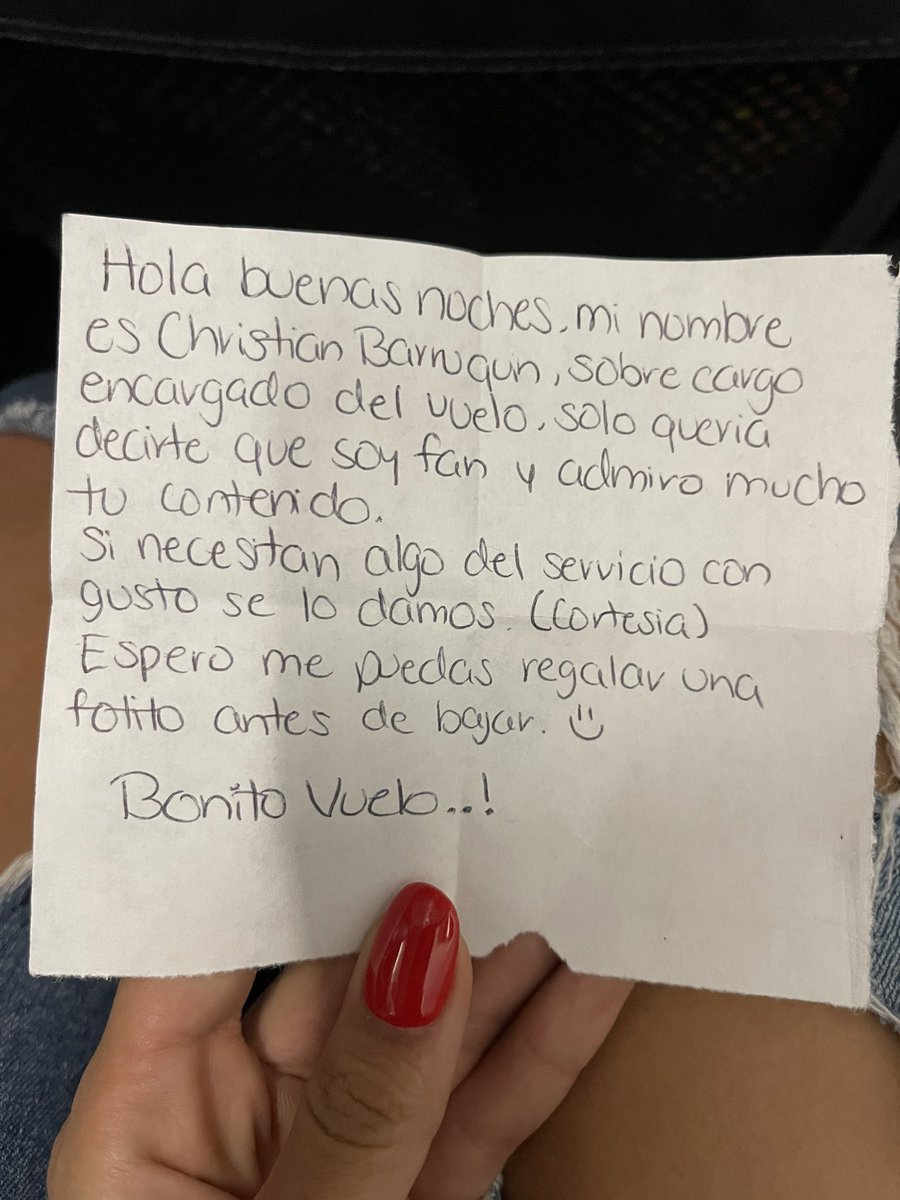 Hola buenas noches, mi nombre
es Christian Barragan, sobre cargo
encargado del vuelo, solo queria
decirte que soy fan y admiro mucho
tu contenido.
Si necesitan algo del servicio con
gusto se lo damos. (Cortesia)
Espero me puedas regalar una
fotito antes de bajar. :)
Bonito Vuelo..!